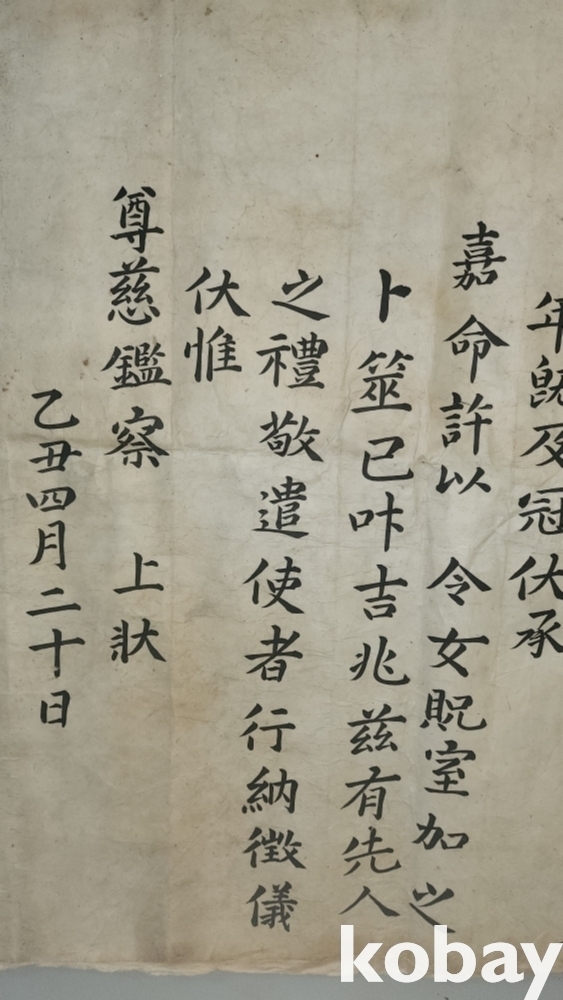 年旣及冠伏承
嘉命許以 令女貺室加之
卜筮已叶吉兆玆有先人
之禮敬遣使者行納徵儀
伏惟
尊慈鑑察 上狀
乙丑四月二十日
kobay